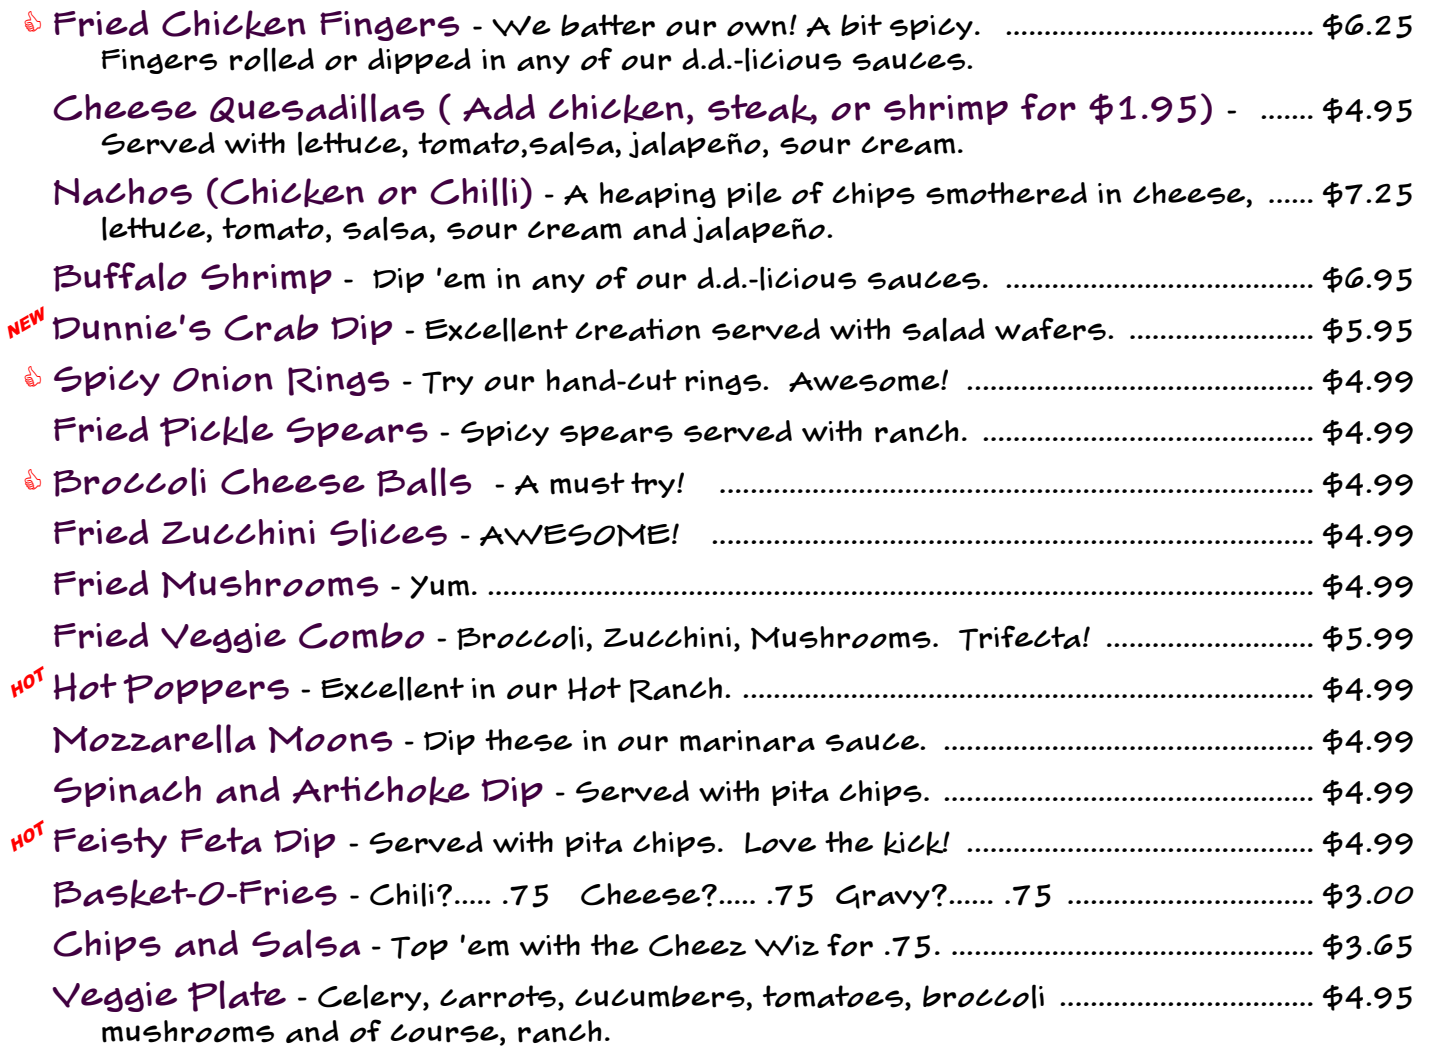 Fried Chicken Fingers - We batter our own! A bit spicy. ............................................ $6.25
Fingers rolled or dipped in any of our d.d.-licious sauces.
Cheese Quesadillas ( Add chicken, steak, or shrimp for $1.95) - ....... $4.95
Served with lettuce, tomato,salsa, jalapeño, sour cream.
Nachos (Chicken or Chilli) - A heaping pile of chips smothered in cheese, ...... $7.25
lettuce, tomato, salsa, sour cream and jalapeño.
Buffalo Shrimp - Dip 'em in any of our d.d.-licious sauces. ............................................ $6.95
NEW Dunnie's Crab Dip - Excellent creation served with salad wafers. .......................... $5.95
Spicy Onion Rings - Try our hand-cut rings. Awesome! .................................................. $4.99
Fried Pickle Spears - Spicy spears served with ranch. ................................................ $4.99
Broccoli Cheese Balls - A must try! ...................................................................................... $4.99
Fried Zucchini Slices - AWESOME! ....................................................................................... $4.99
Fried Mushrooms - Yum. ........................................................................................................................ $4.99
Fried Veggie Combo - Broccoli, Zucchini, Mushrooms. Trifecta! .............................. $5.99
HOT Hot Poppers - Excellent in our Hot Ranch. ................................................................................... $4.99
Mozzarella Moons - Dip these in our marinara sauce. ...................................................... $4.99
Spinach and Artichoke Dip - Served with pita chips. ...................................................... $4.99
HOT Feisty Feta Dip - Served with pita chips. Love the kick! .................................................. $4.99
Basket-O-Fries - Chili?..... .75 Cheese?..... .75 Gravy?...... .75 .................................... $3.00
Chips and Salsa - Top 'em with the Cheez Wiz for .75. ..................................................... $3.65
Veggie Plate - Celery, carrots, cucumbers, tomatoes, broccoli ..................................... $4.95
mushrooms and of course, ranch.